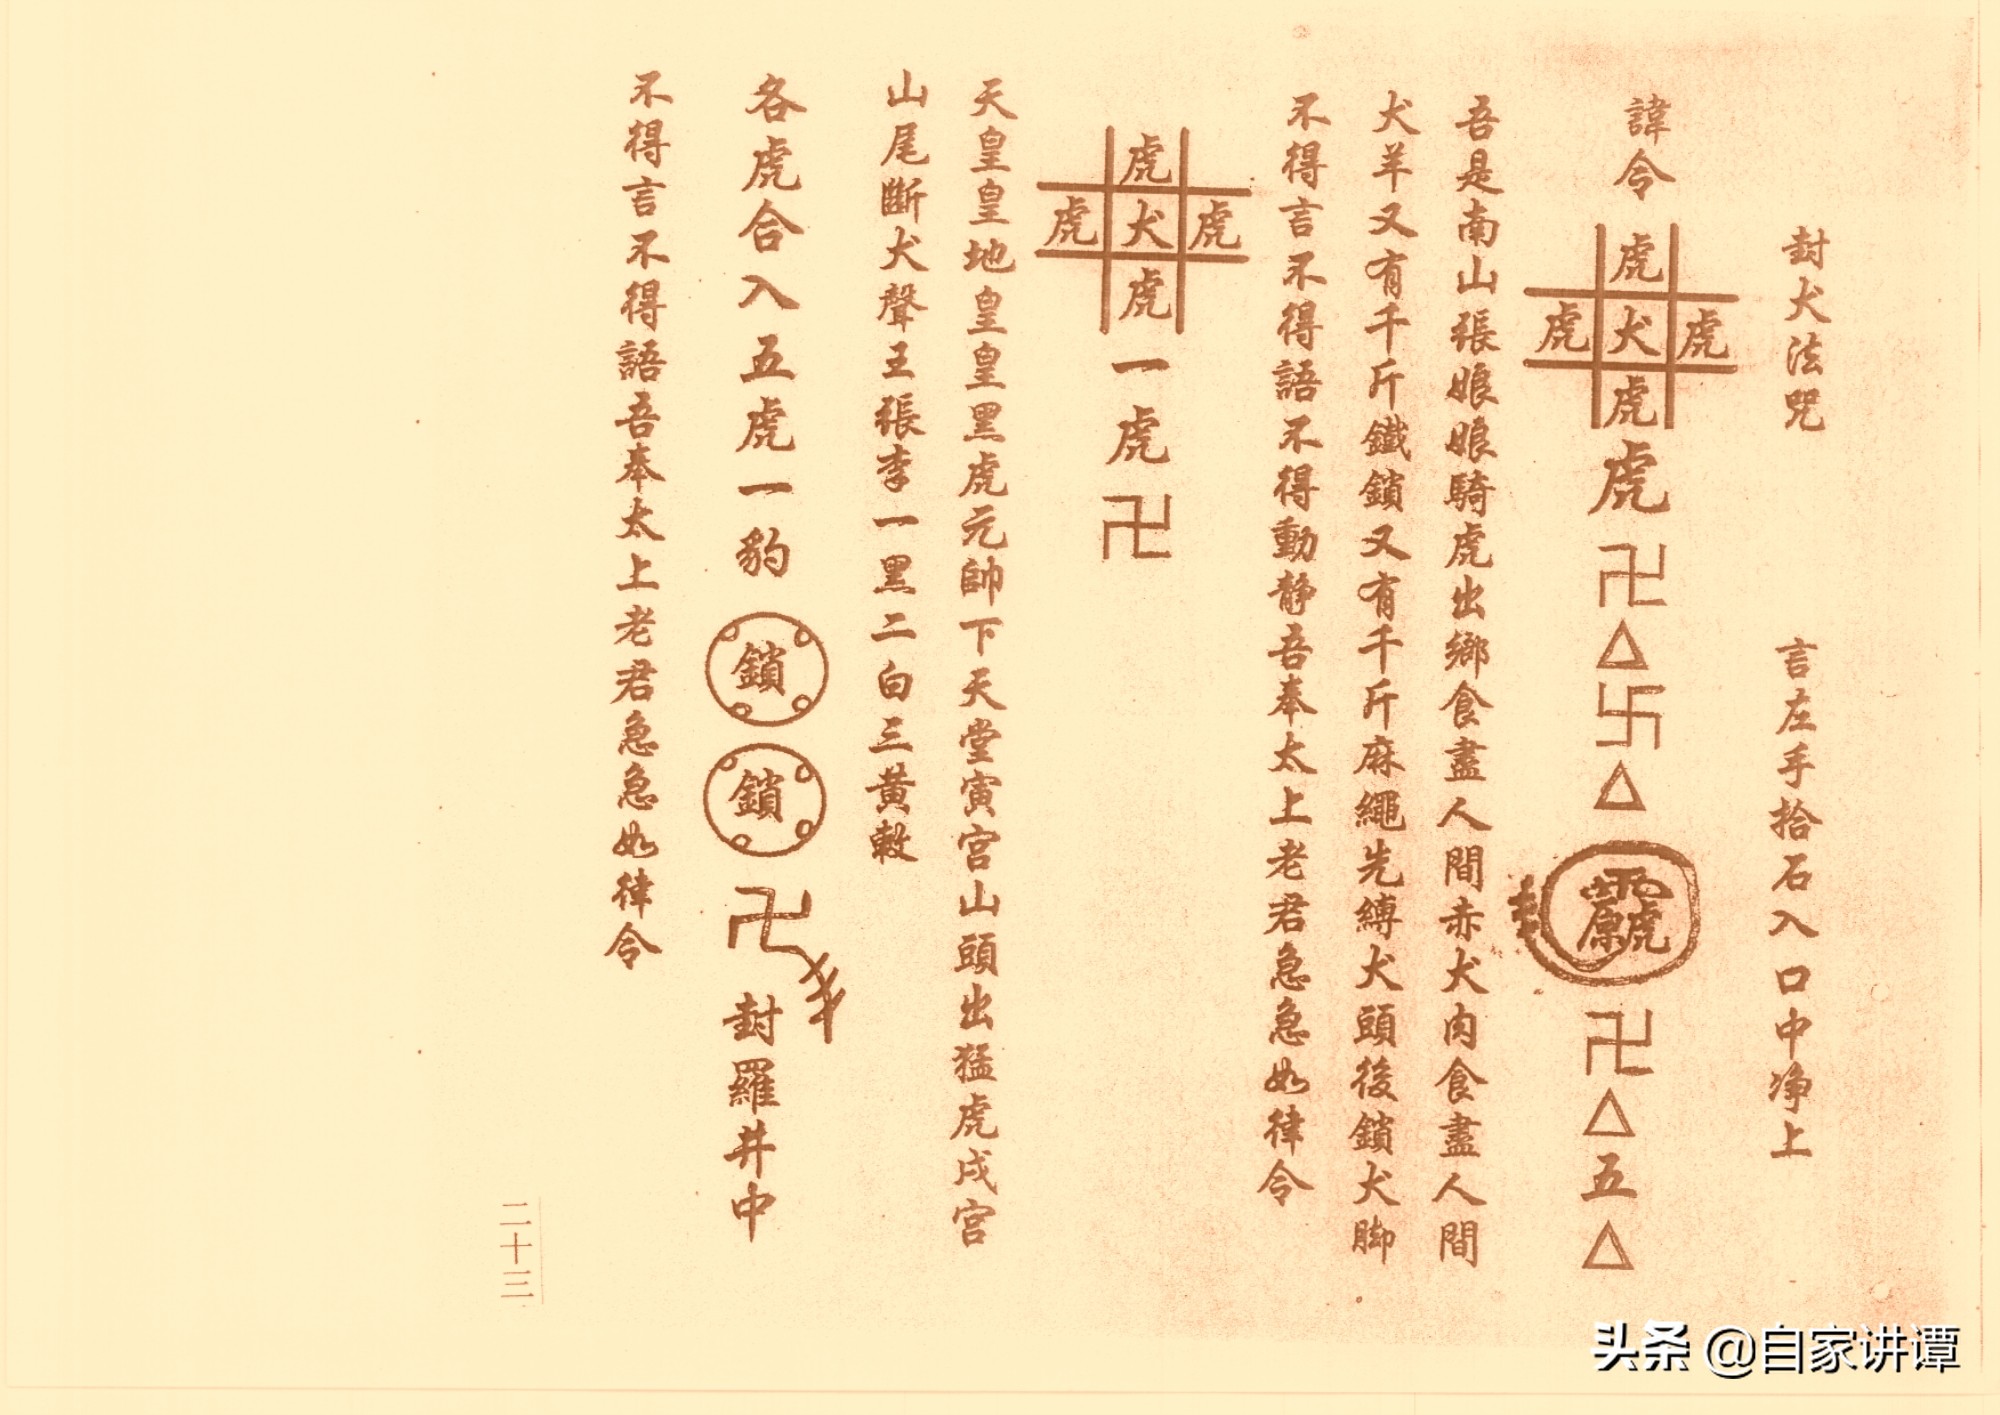 封犬法咒　言左手拾石入口中净上
諱令虎虎犬虎虎虎卍△卐△卍△五△
吾是南山張娘娘騎虎出鄉食盡人間赤犬肉食盡人間
犬羊又有千斤鐵鎖又有千斤麻繩先縛犬頭後鎖犬脚
不得言不得語不得動静吾奉太上老君急急如律令
虎虎犬虎虎一虎卍
天皇皇地皇皇黑虎元帥下天堂寅宫山頭出猛虎戌宫
山尾斷犬聲王張李一黑二白三黄
各虎合入五虎一豹鎖鎖卍封羅井中
不得言不得語吾奉太上老君急急如律令
二十三
头条 @自家讲谭